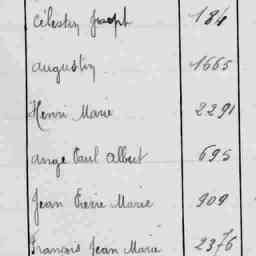 Célestin Joseph 184
Augustin 1665
Henri Marie 2291
Ange Paul Albert 695
Jean Pierre Marie 909
François Jean Marie 2376